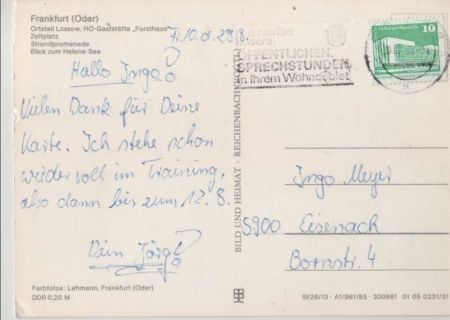 Frankfurt (Oder)
Ortsteil Lossow, HO-Gaststätte „Forsthaus"
Zeltplatz
Strandpromenade
Blick zum Helene-See
Hallo Ingo!
Vielen Dank für Deine
Karte. Ich stehe schon
wieder voll im Training,
also dann bis zum 12.8.
Dein Jörg!
Farbfotos: Lehmann, Frankfurt (Oder)
DDR 0,20 M
BILD UND HEIMAT · REICHENBACH
ÖFFENTLICHEN
SPRECHSTUNDEN
in Ihrem Wohngebiet
10
Ingo Meyer
5900 Eisenach
Bornstr. 4
III/26/13 · A1/961/85 · 300961 01 05 0231/31